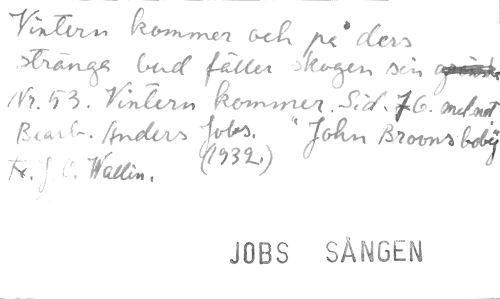 Vintern kommer och på ders
stränga bud fäller skogen sin
Nr. 53. Vintern kommer. Sid. 76. mel.not
Bearb. Anders Jobs. "John Broons boby"
tr. J. O. Wallin. (1932.)
JOBS SÅNGEN